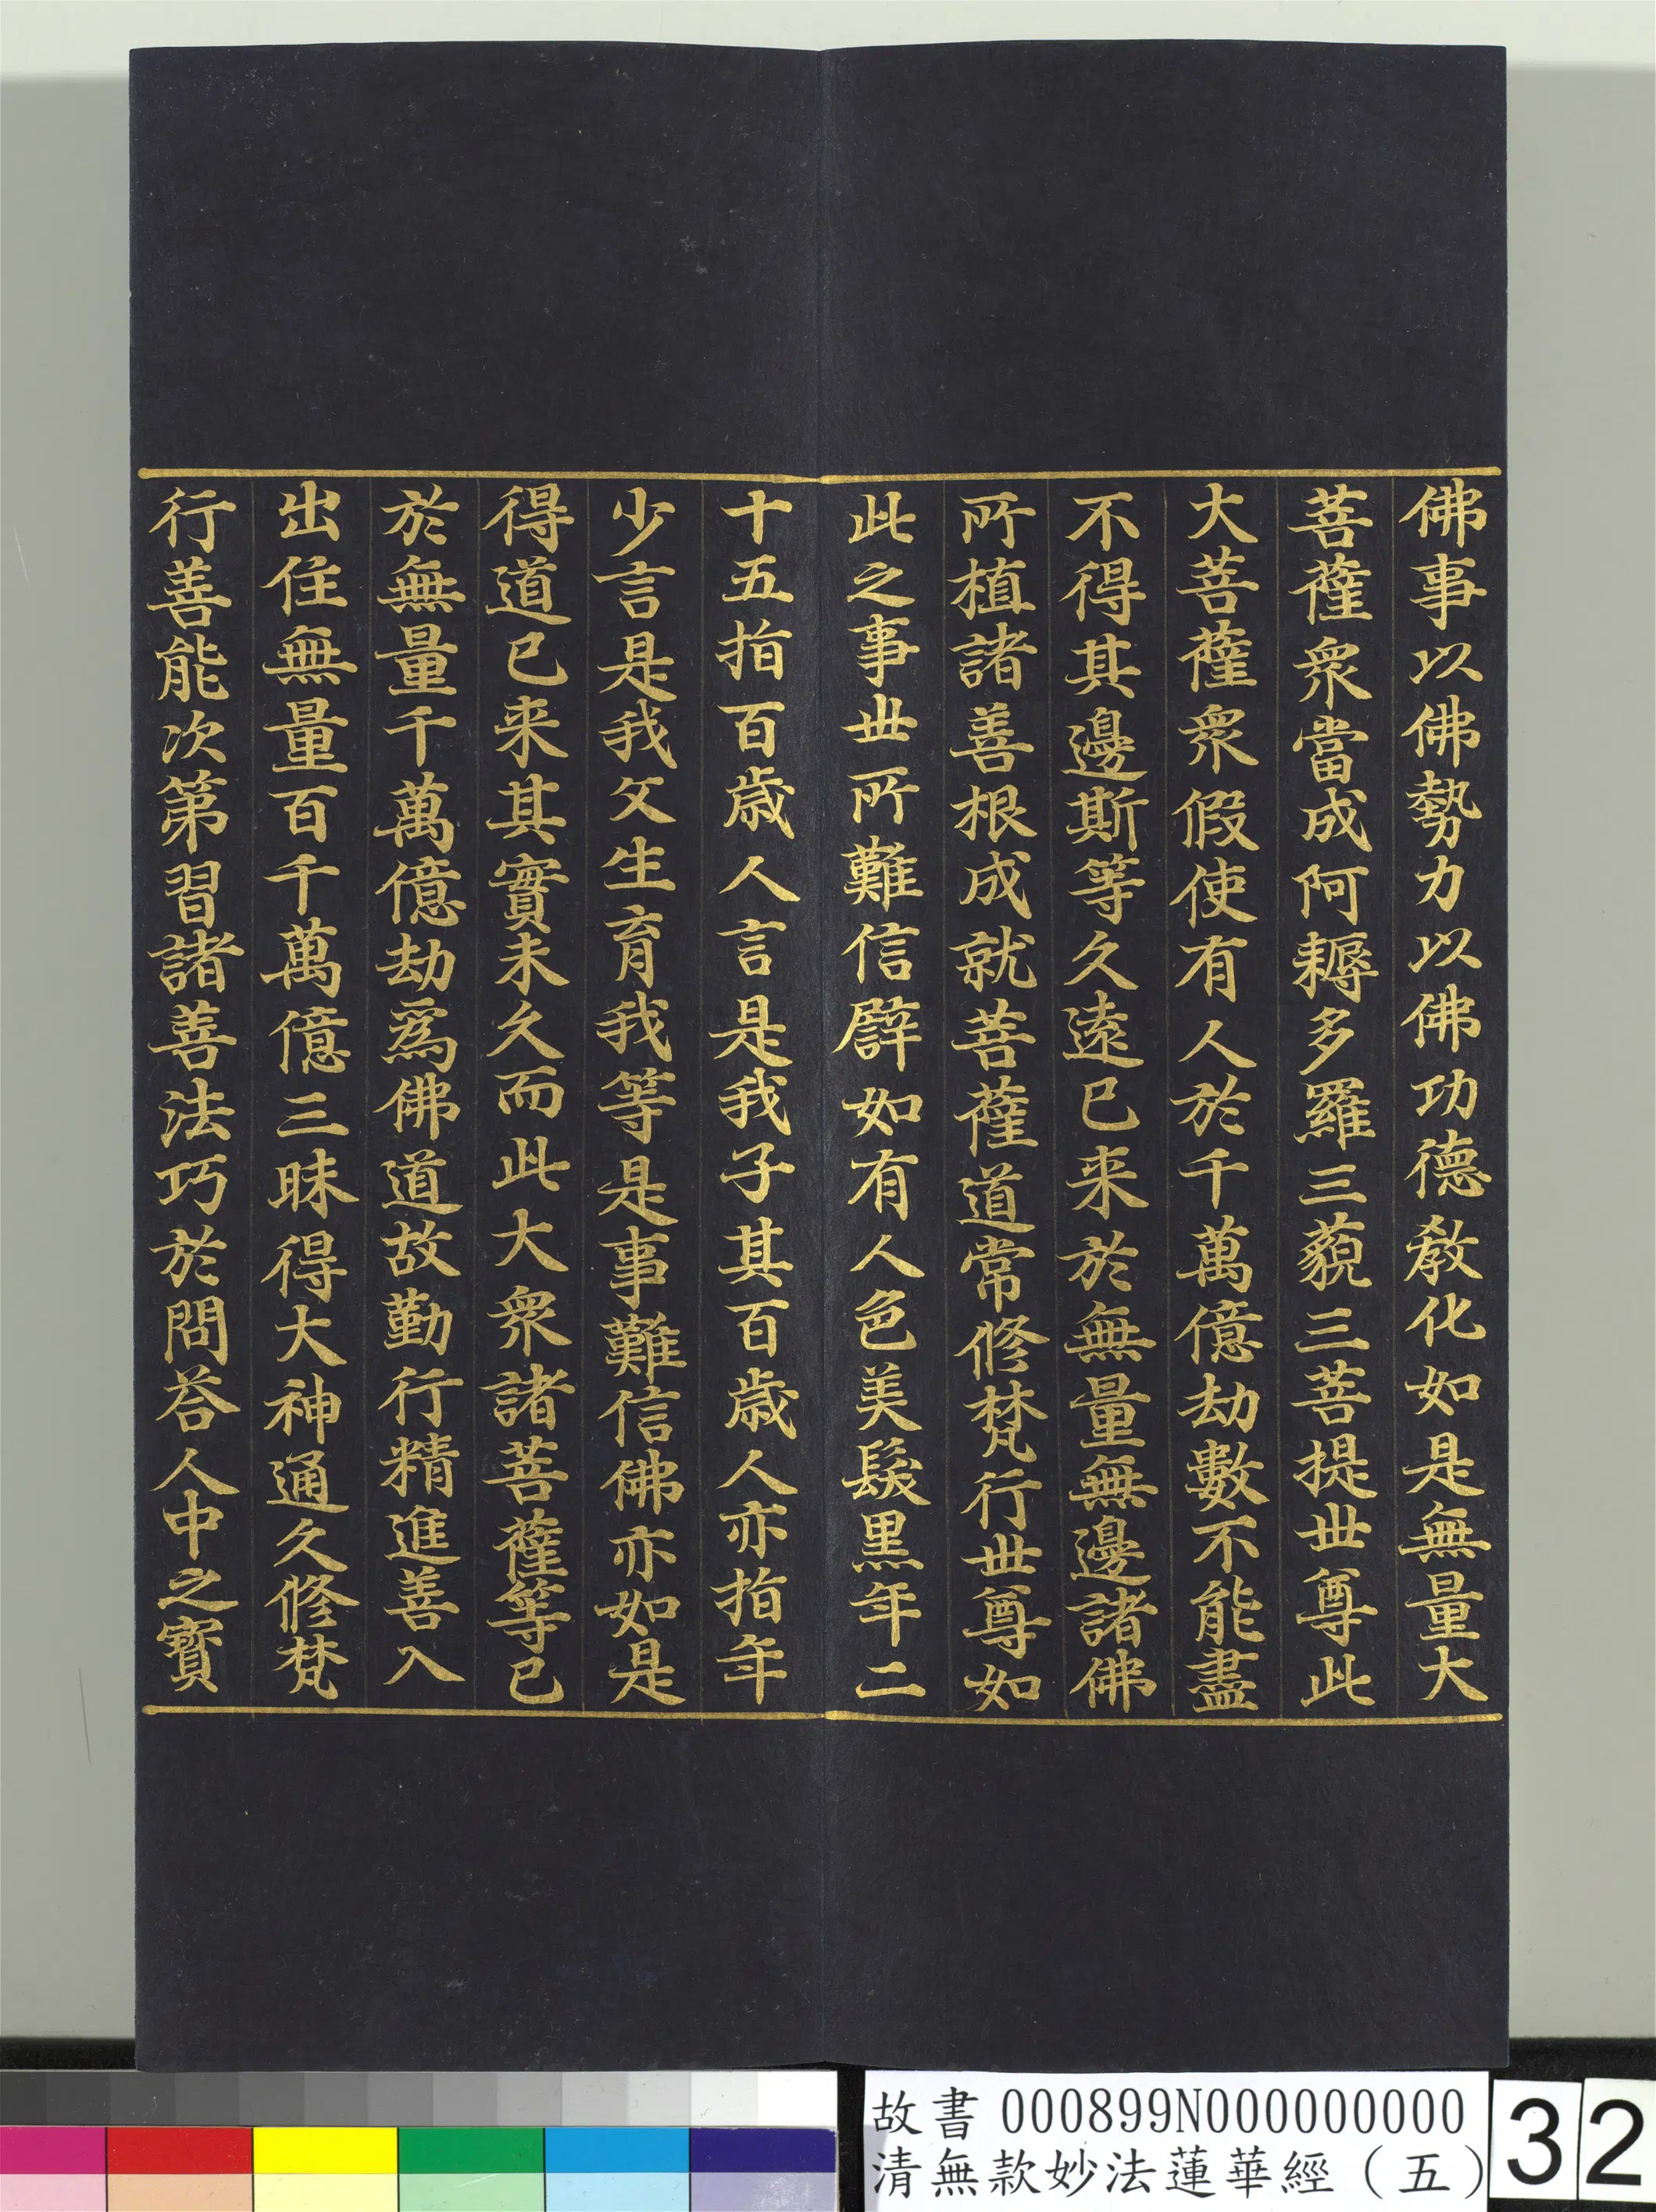 佛事以佛勢力以佛功德教化如是無量大
菩薩衆當成阿耨多羅三藐三菩提世尊此
大菩薩衆假使有人於千萬億劫數不能盡
不得其邊斯等久遠已来於無量無邊諸佛
所植諸善根成就菩薩道常修梵行世尊如
此之事世所難信譬如有人色美髮黒年二
十五指百歳人言是我子其百歳人亦指年
少言是我父生育我等是事難信佛亦如是
得道已来其實未久而此大衆諸菩薩等已
於無量千萬億劫爲佛道故勤行精進善入
出住無量百千萬億三昧得大神通久修梵
行善能次第習諸善法巧於問答人中之寳
故書 000899N000000000
清無款妙法蓮華經（五）
32